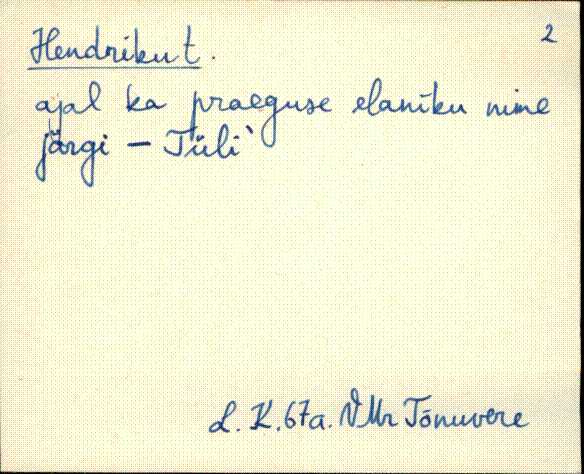 2
Hendriku t.
ajal ka praeguse elaniku nime
järgi – Tüli`
L. K. 67a. VMr Tõnuvere